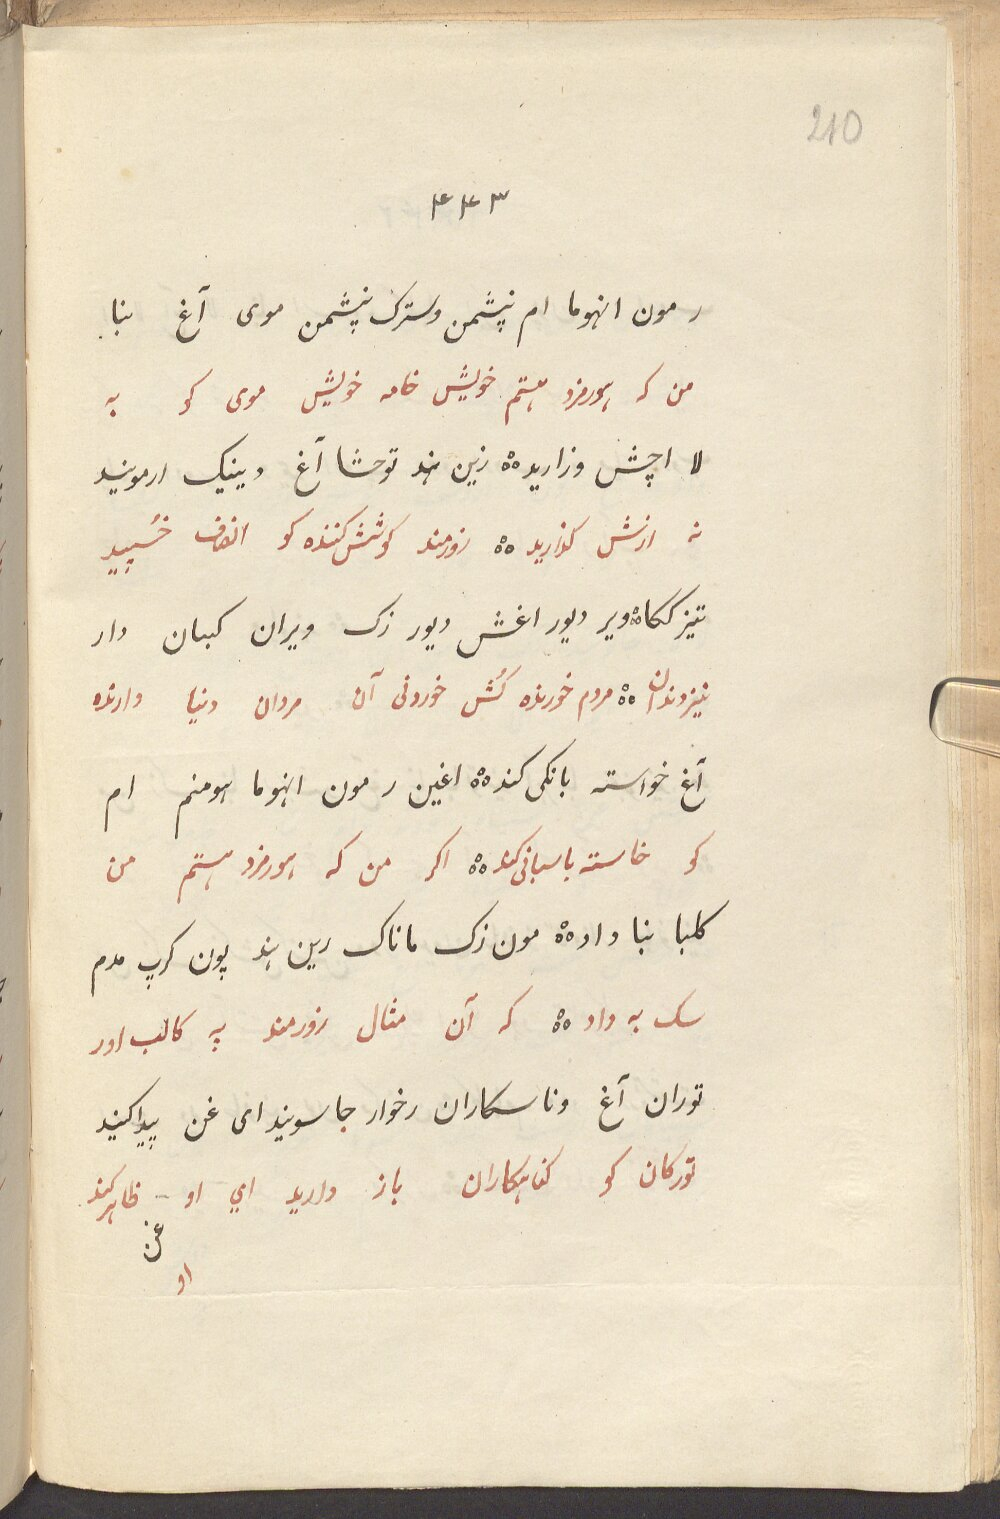 210
۴۴۳
ر مون انهوما ام نپشمن وسترک نپشمن موی آغ بنا
من که هورمزد هستم خویش خامه خویش موی کو به
لا اچش وزارید زین هند توخشا آغ دینیک ارمونید
نه ازش گذارید زورمند کوشش کننده کو انصاف خسپید
تیز ککاه ویر دیور اغش دیور زک ویران کیبان دار
تیزدندان مردم خورنده کش خوردنی آن مردان دنیا دارنده
آغ خواسته بانکی کند اغین ر مون انهوما هومنم ام
کو خاسته باسبانی کند اکر من که هورمزد هستم من
کلبا بنا داد مون زک ماناک زین هند پون کرپ مدم
سک به داد که آن مثال زورمند په کالب اور
توران آغ وناسکاران رخوار جاسونید ای غن پیدا کنید
تورکان کو کناهکاران باز دارید ای او ظاهر کنید
غن
او